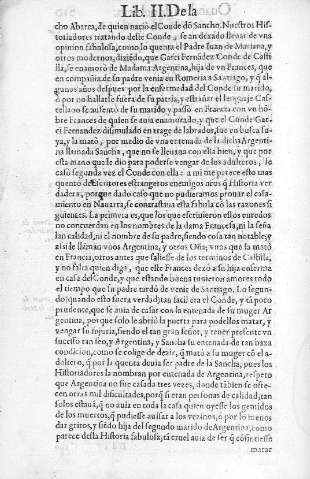 Lib. II. De la
cho Abarca, de quien naciò el Conde dō Sancho. Nuestros Historiadores tratando deste Conde, se an dexado lleuar de vna
opinion fabulosa, como lo quenta el Padre Iuan de Mariana, y
otros modernos, diziēdo, que Garci Fernādez Conde de Castilla, se enamorò de Madama Argentina, hija de vn Frances, que
en compañia de su padre venia en Romeria a Santiago, y q̄ algunos años despues por la enfermedad del Conde su marido,
ò por no hallarse fuera de su patria, y estrañar el lenguaje Castellano se ausentò de su marido, y passò en Francia con vn hōbre Frances de quien se auia enamorado, y que el Conde Garci Fernandez disimulado en trage de labrador, fue en busca suya, y la matò, por medio de vna entenada de la dicha Argentina llamada Sancha, que no se lleuaua con ella bien, y que por
esta mano que le dio para poderse vengar de los adulteros, se
casò segunda vez el Conde con ella: a mi me parece esto mas
quento de Escritores estrangeros enemigos que Historia verdadera, porque dado caso que no pudieramos prouar el casamiento en Nauarra, se contrastaua esta fabula cō las razones siguientes. La primera es, que los que escriuieron estos enredos
no concuerdan en los nombres de la dama Francesa, ni la señalan calidad, ni el nombre de su padre, siendo cosa tan notable, y
assi le llaman vnos Argentina, y otros Oña; vnos que la matò
en Francia, otros antes que saliesse de los terminos de Castilla,
y no falta quien diga, que este Frances dexò a su hija enferma
en casa de el Conde, y que estando buena tuuieron amores todo
el tiempo que su padre tardò de venir de Santiago. Lo segundo, quando esto fuera verdad, tan facil era el Conde, y tā poco
prudente, que se auia de casar con la entenada de su muger Argentina, porque solo le abriò la puerta para podellos matar, y
vengar su injuria, siendo el tan gran señor, y tener presente vn
sucesso tan feo, y Argentina, y Sancha su entenada de tan baxa
condicion, como se colige de dezir, q̄ matò a su muger cō el adoltero, q̄ por la quenta deuia ser padre de la Sancha, pues los
Historiadores la nombran por entenada de Argentina, respeto
que Argentina no fue casada tres vezes, donde tābien se ofrecen otras mil dificultades, porq̄ si eran personas de calidad, tan
solos estauā, q̄ no auia en toda la casa quien oyesse los gemidos
de los muertos, q̄ pudiesse auisar a los vezinos, ò por lo menos
dar gritos, y siēdo hija del segundo marido de Argentina, como
parece desta Historia fabulosa, tā cruel auia de ser q̄ cōsintiesse
matar